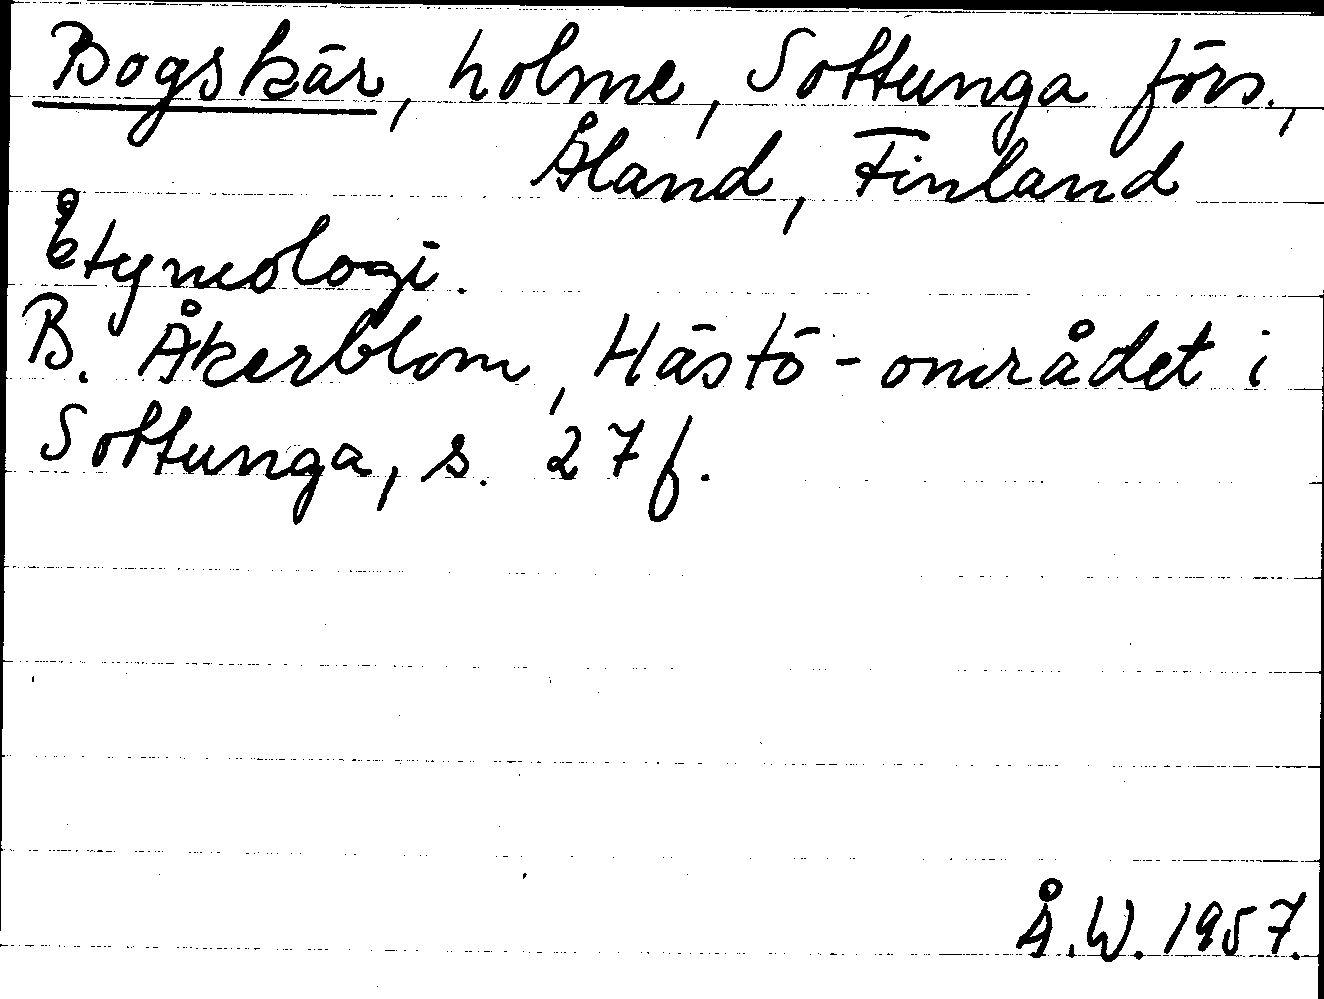 Bogskär, holme, Sottunga förs.,
Åland, Finland
Etymologi.
B. Åkerblom, Hästö-området i
Sottunga, s. 27 f.
Å.W. 1957.